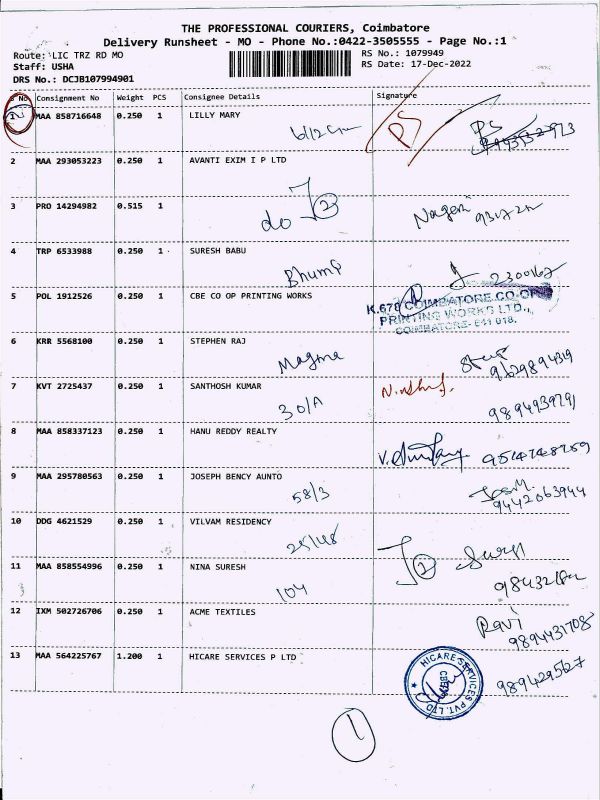 THE PROFESSIONAL COURIERS, Coimbatore
Delivery Runsheet - MO - Phone No.:0422-3505555 - Page No.:1
Route: LIC TRZ RD MO RS No.: 1079949
Staff: USHA RS Date: 17-Dec-2022
DRS No.: DCJB107994901
No Consignment No Weight PCS Consignee Details Signature
MAA 858716648 0.250 1 LILLY MARY
PS PS
2 MAA 293053223 0.250 1 AVANTI EXIM I P LTD
3 PRO 14294982 0.515 1
do
4 TRP 6533988 0.250 1 SURESH BABU
Bhumi 2300162
5 POL 1912526 0.250 1 CBE CO OP PRINTING WORKS
K.678 COIMBATORE CO.OP
PRINTING WORKS LTD.,
COIMBATORE- 641 018.
6 KRR 5568100 0.250 1 STEPHEN RAJ
Magma
7 KVT 2725437 0.250 1 SANTHOSH KUMAR
30/A
8 MAA 858337123 0.250 1 HANU REDDY REALTY
9 MAA 295780563 0.250 1 JOSEPH BENCY AUNTO
58/3 9442063944
10 DDG 4621529 0.250 1 VILVAM RESIDENCY
25/48
11 MAA 858554996 0.250 1 NINA SURESH
104
12 IXM 502726706 0.250 1 ACME TEXTILES
Ravi
9894431708
13 MAA 564225767 1.200 1 HICARE SERVICES P LTD
HICARE SERVICES PVT. LTD
CBE
1